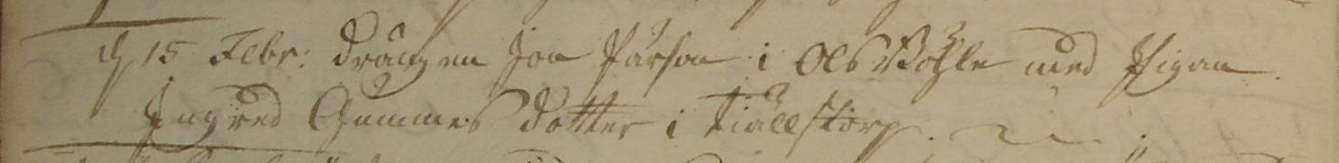 d 15 Febr: drängen Jon Pärson i Ols Böhle med Pigan
Ingred Gummes dotter i Fiällstörp.